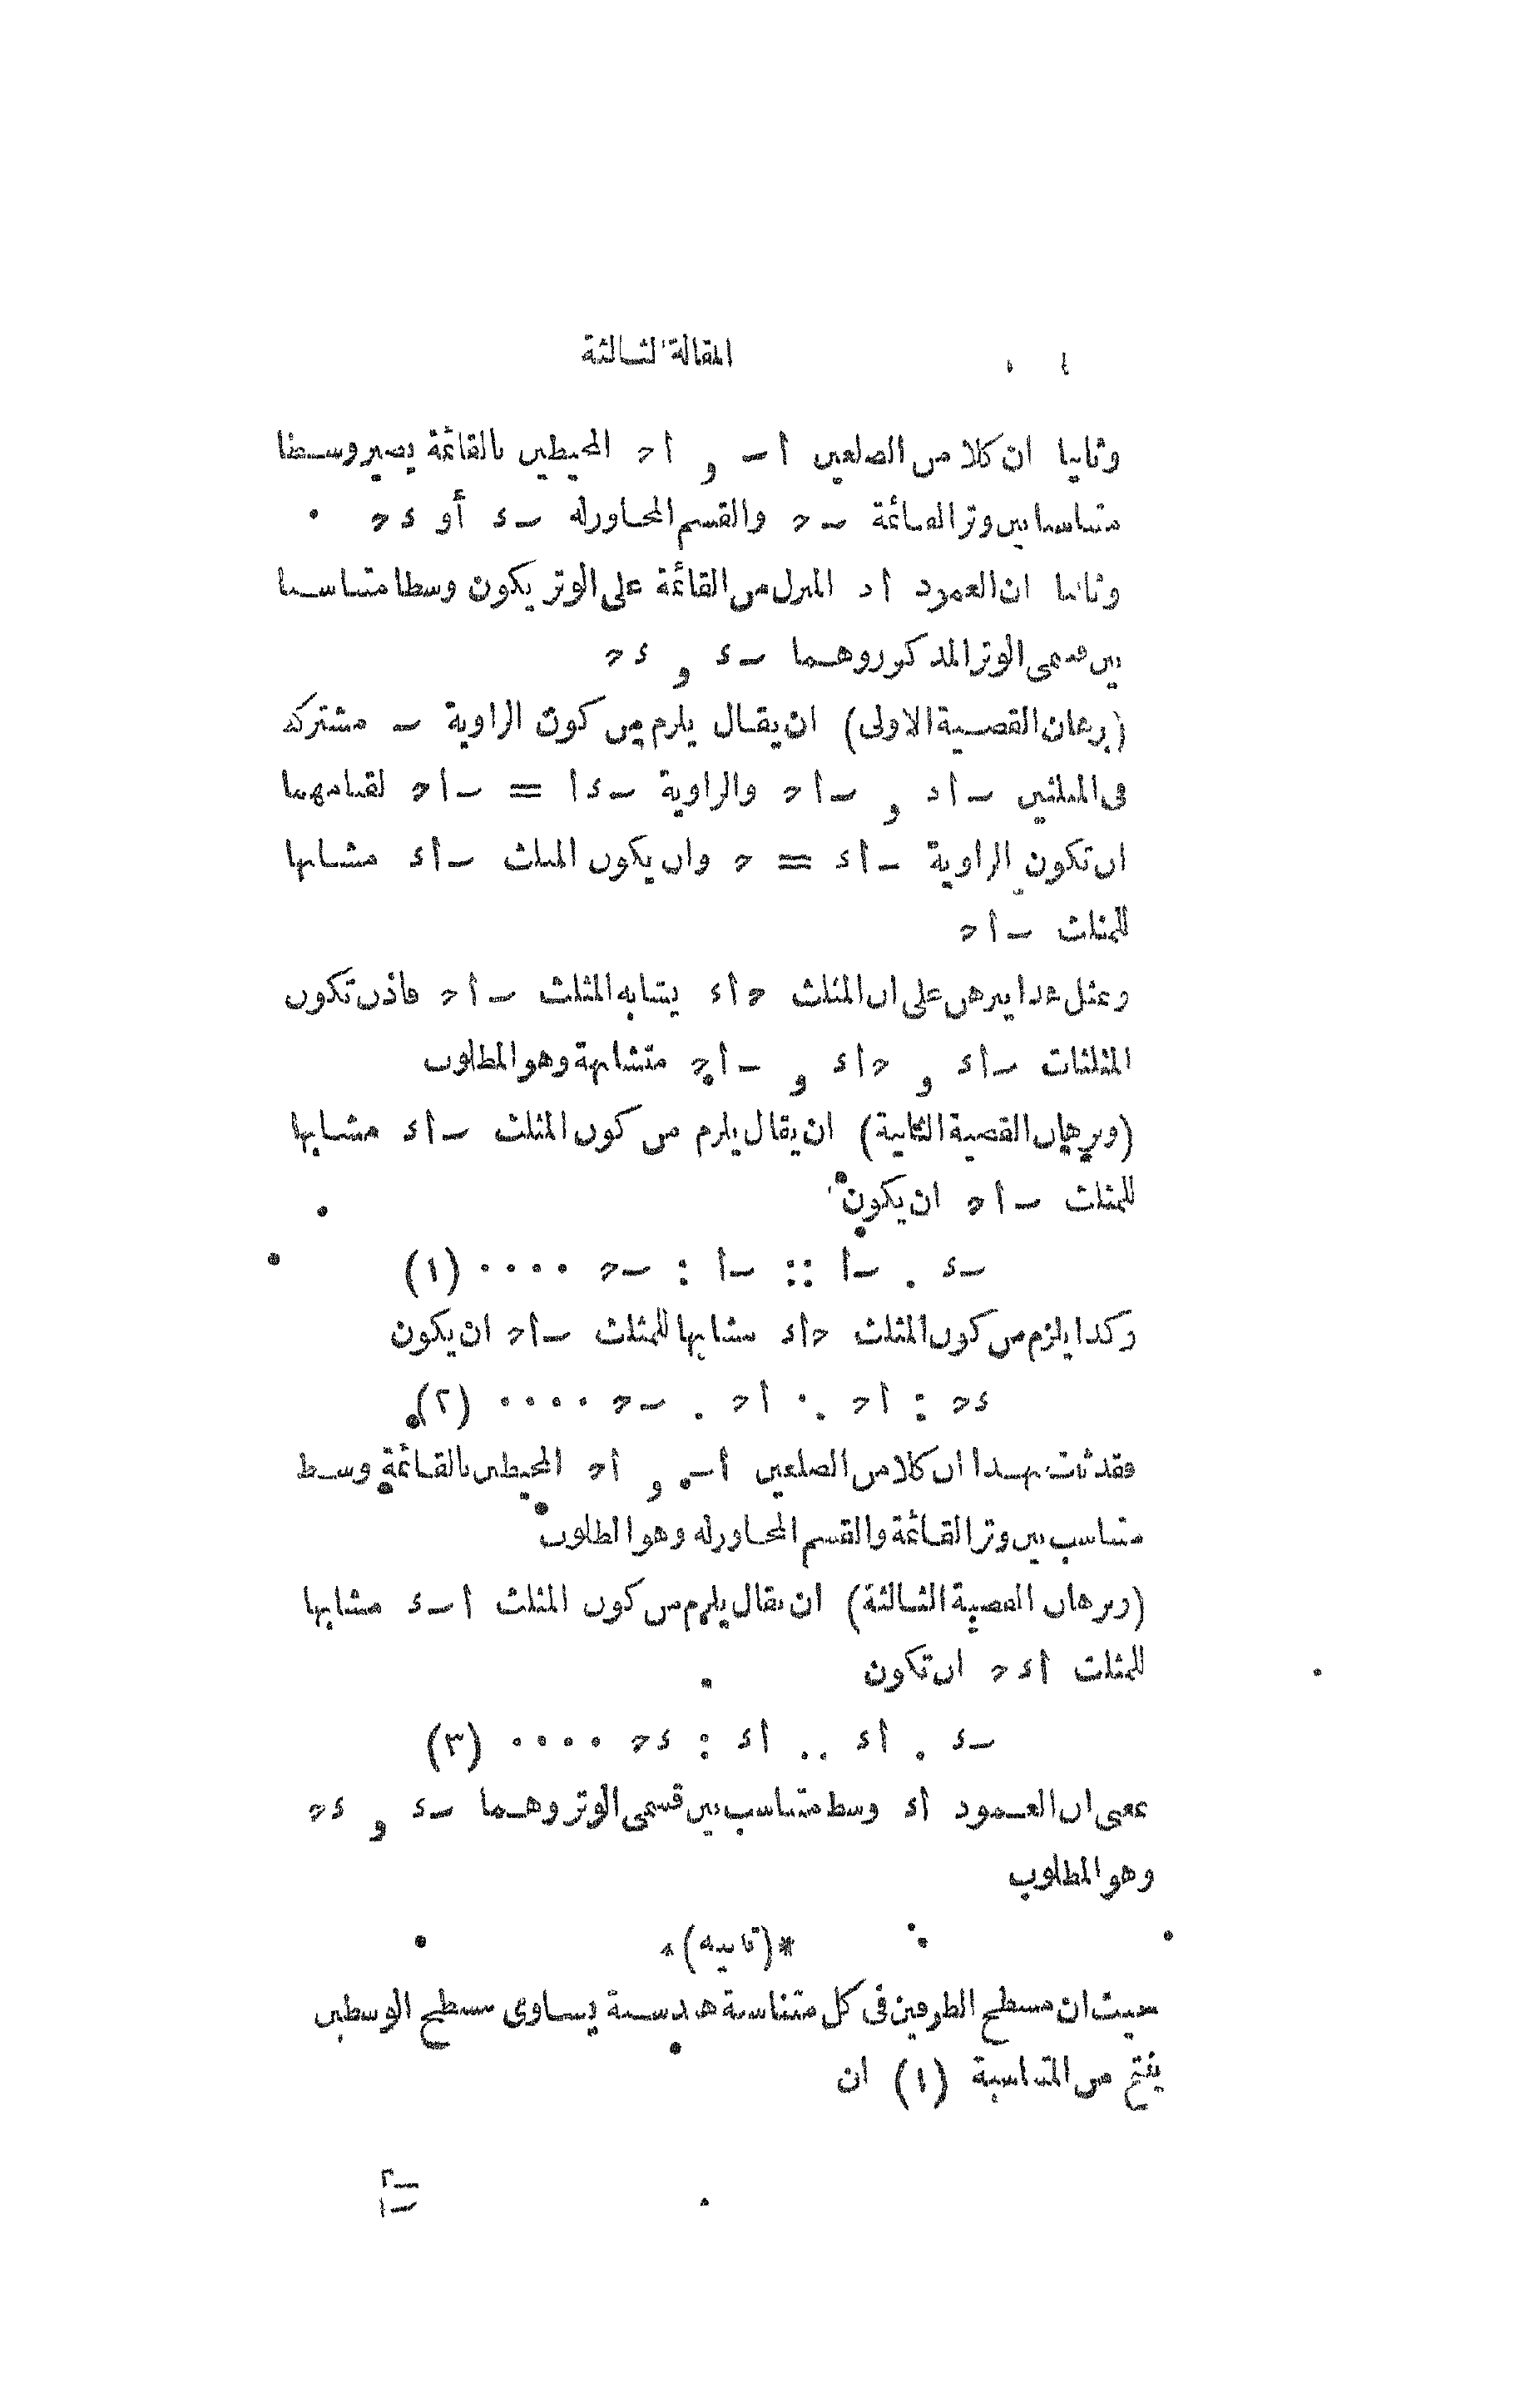 المقالة الثالثة
وثانيا ان كلا من الضلعين أ ب و أ ح المحيطين بالقائمة يصير وسطا
متناسبا بين وتر القائمة ب ح والقسم المجاور له ب ء أو ء ح
وثالثا ان العمود أ د المنزل من القائمة على الوتر يكون وسطا متناسبا
بين قسمى الوتر المذكور وهما ب ء و ء ح
(برهان القضية الاولى) ان يقال يلزم من كون الزاوية ب مشتركة
فى المثلثين ب أ د و ب أ ح والزاوية ب ء أ = ب أ ح لقيامهما
ان تكون الزاوية ب أ ء = ح وان يكون المثلث ب أ ء مشابها
للمثلث ب أ ح
وبمثل هذا يبرهن على ان المثلث ح أ ء يشابه المثلث ب أ ح فاذن تكون
المثلثات ب أ ء و ح أ ء و ب أ ح متشابهة وهو المطلوب
(وبرهان القضية الثانية) ان يقال يلزم من كون المثلث ب أ ء مشابها
للمثلث ب أ ح ان يكون
ب ء : ب أ :: ب أ : ب ح .... (١)
وكذا يلزم من كون المثلث ح أ ء مشابها للمثلث ب أ ح ان يكون
ء ح : أ ح :: أ ح : ب ح .... (٢)
فقد ثبت بهذا ان كلا من الضلعين أ ب و أ ح المحيطين بالقائمة وسط
متناسب بين وتر القائمة والقسم المجاور له وهو المطلوب
(وبرهان القضية الثالثة) ان يقال يلزم من كون المثلث أ ب ء مشابها
للمثلث أ ء ح ان تكون
ب ء : أ ء :: أ ء : ء ح .... (٣)
بمعنى ان العمود أ ء وسط متناسب بين قسمى الوتر وهما ب ء و ء ح
وهو المطلوب
*(تنبيه)*
حيث ان مسطح الطرفين فى كل متناسبة هندسية يساوى مسطح الوسطين
ينتج من المتناسبة (١) ان